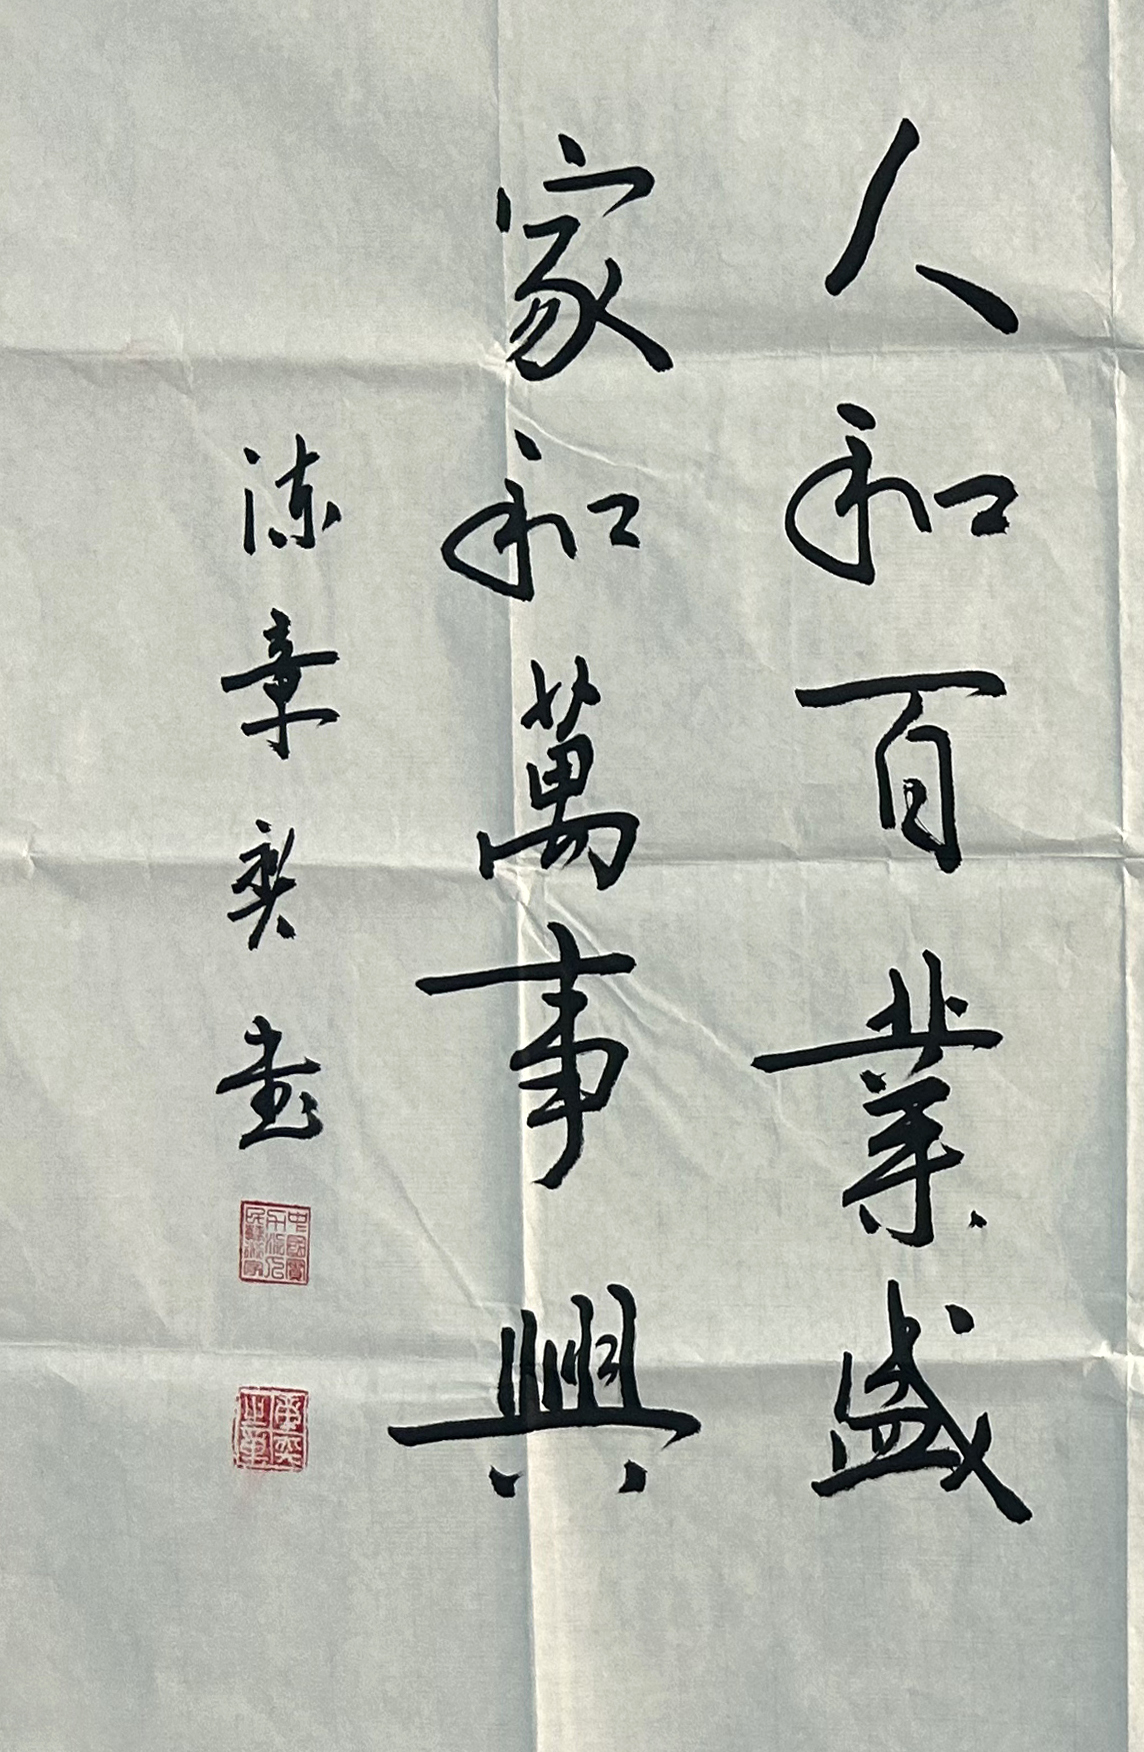 人和百業盛
家和萬事興
陳章奕書